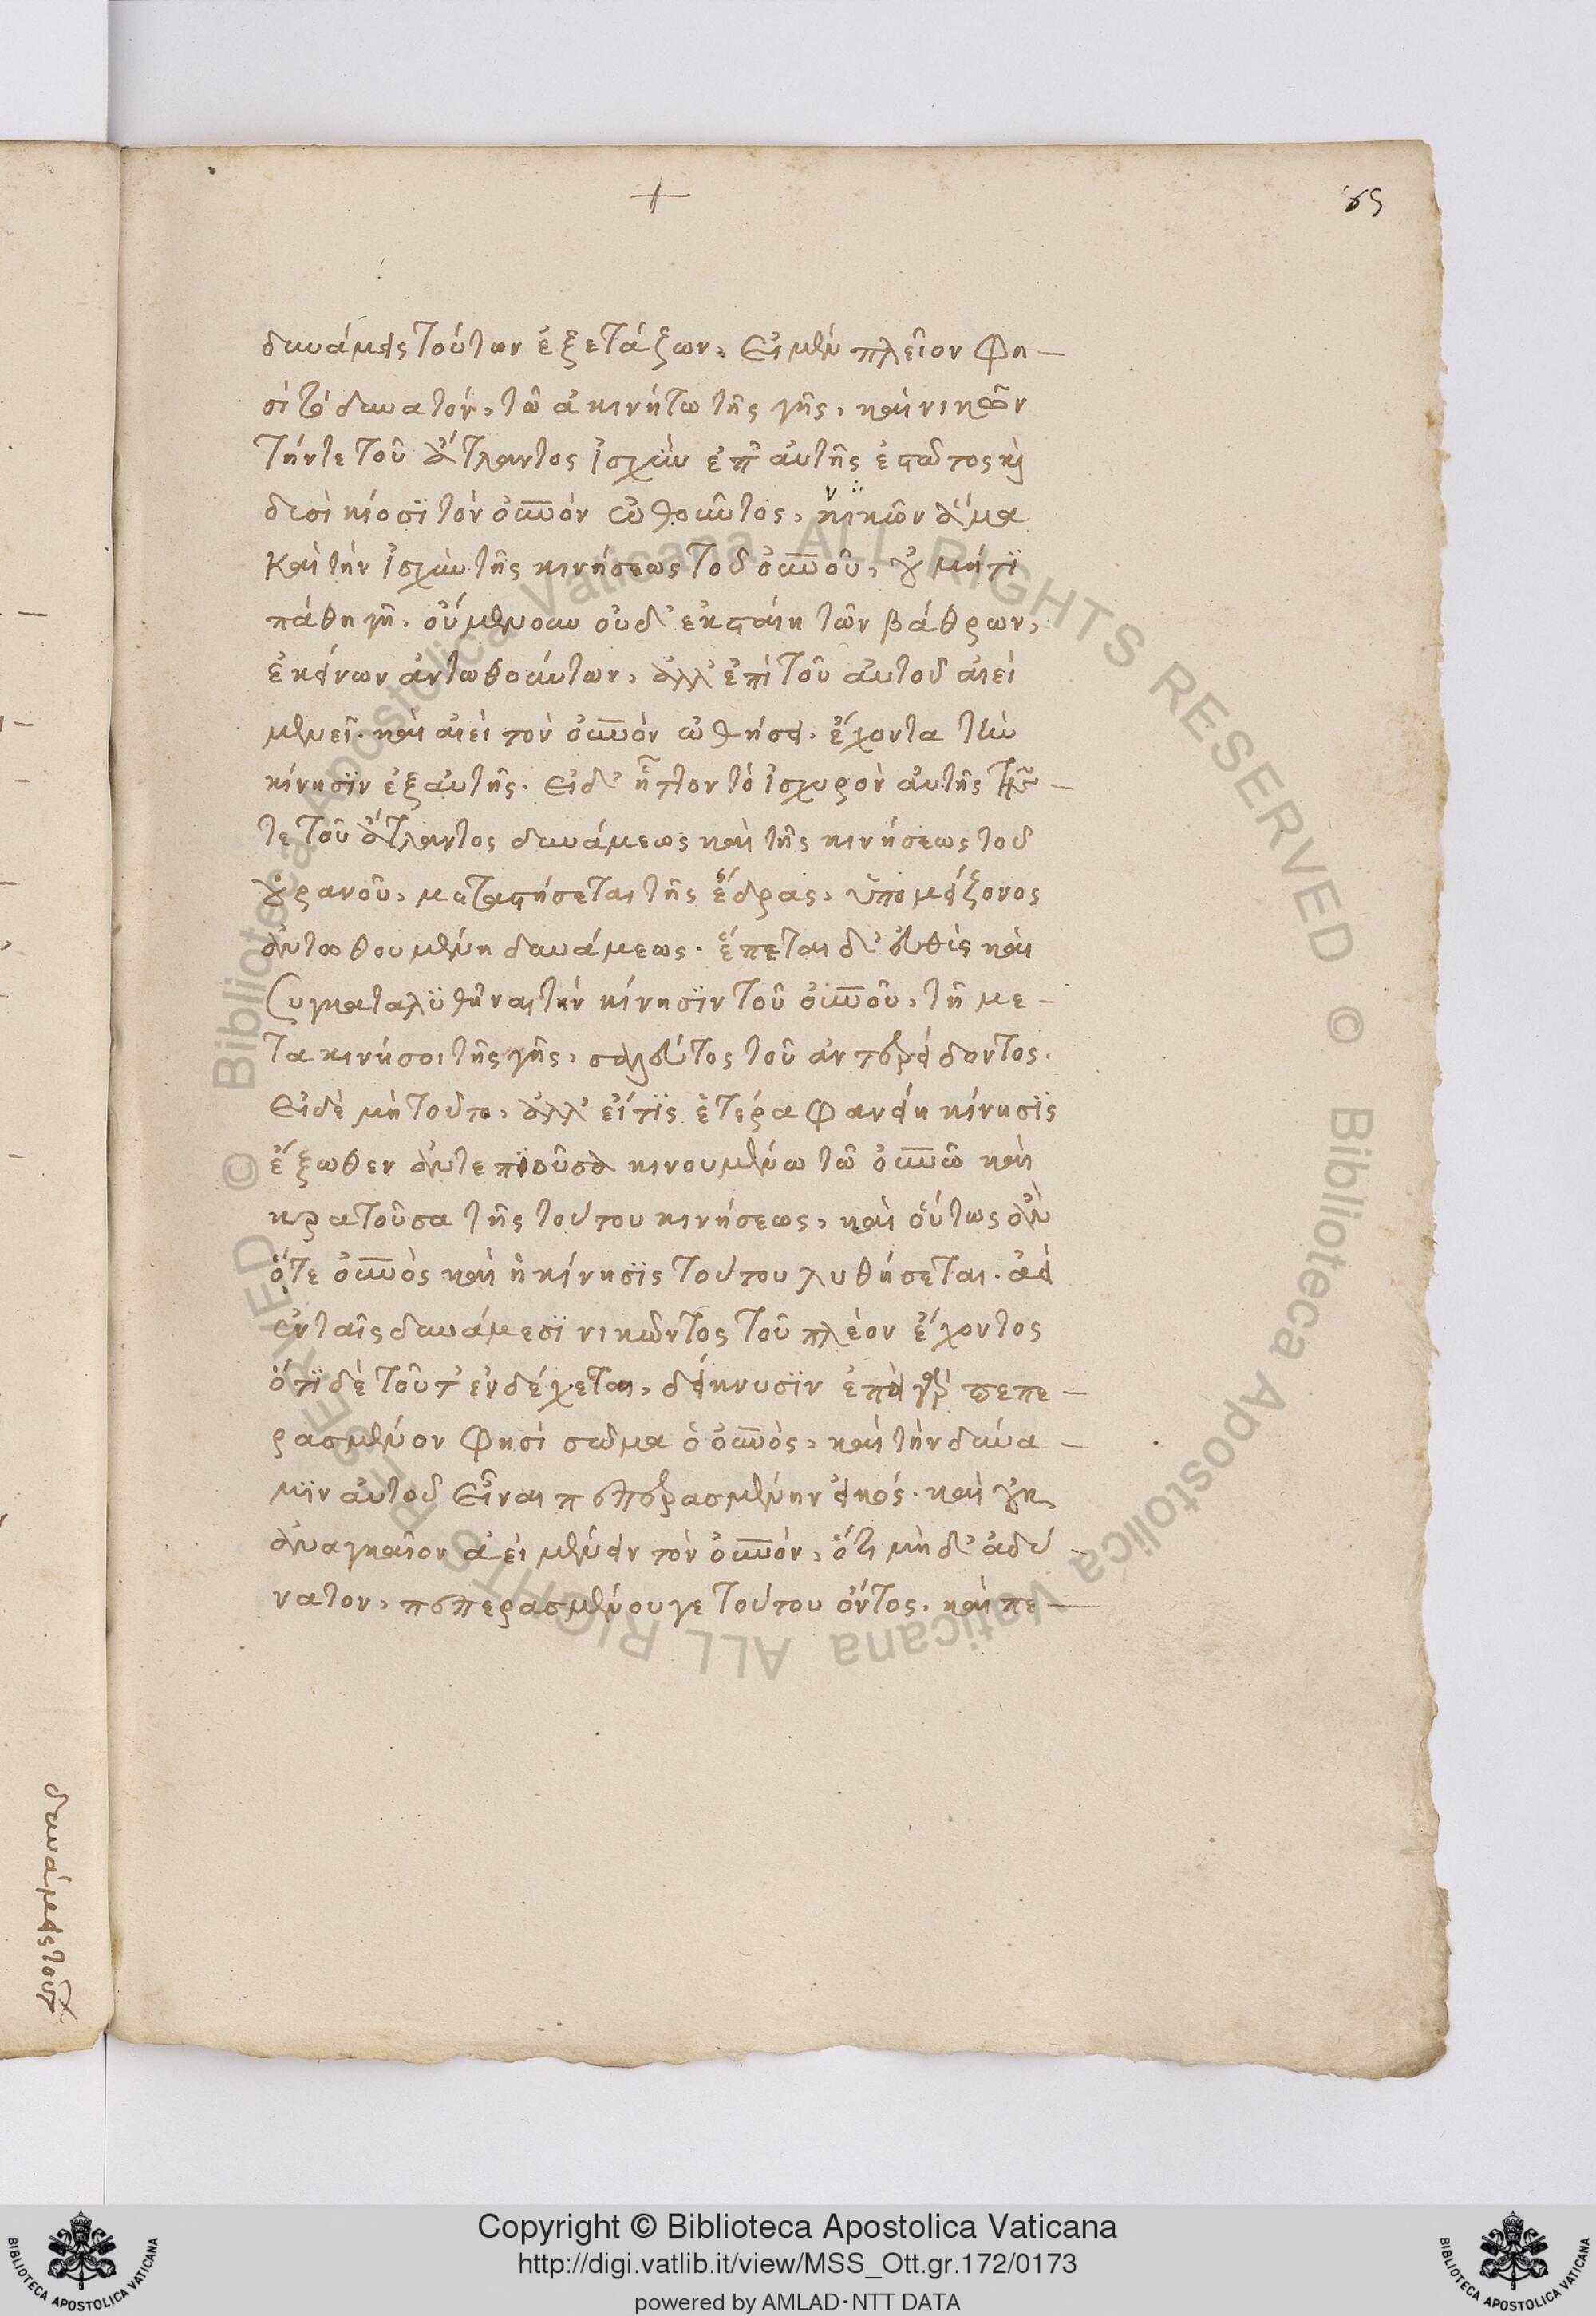 65
δυνάμεις τούτων ἐξετάζων. Εἰ μὲν πλεῖον φη-
σὶ τὸ δυνατόν, τῶ ἀκινήτω τῆς γῆς, καὶ νικῶν
τήν τε τοῦ ἄτλαντος ἰσχὺν ἐπ' αὐτῆς ἑστῶτος καὶ
δυσὶ κίοσϊ τὸν οὐνὸν ὠθοῦντος, νικῶν ἅμα
καὶ τὴν ἰσχὺν τῆς κινήσεως τοῦ οὐνοῦ, οὐ μήτϊ
πάθη γῆ. οὔμενουν οὐδ' ἐκσταίη τῶν βάθρων,
ἐκείνων ἀντωθούντων, ἀλλ' ἐπὶ τοῦ αὐτοῦ ἀιεὶ
μενεῖ. καὶ ἀιεὶ τὸν οὐνὸν ὠθήσει. ἔχοντα τὴν
κίνησϊν ἐξ αὐτῆς. Εἰ δ' ἧττον τὸ ἰσχυρὸν αὐτῆς τῆς
τε τοῦ ἄτλαντος δυνάμεως καὶ τῆς κινήσεως τοῦ
οὐρανοῦ, μεταστήσεται τῆς ἕδρας, ὑπὸ μείζονος
ἀντωθουμένη δυνάμεως. ἕπεται δ' εὐθὶς καὶ
συγκαταλϋθῆναι τὴν κίνησϊν τοῦ οὐνοῦ, τῇ με-
τακινήσει τῆς γῆς, σαλεύοντος τοῦ ἀντερείδοντος.
Εἰ δὲ μὴ τοῦτο, ἀλλ' εἴ τϊς ἑτέρα φανείη κίνησϊς
ἔξωθεν ἀντεπϊοῦσα κινουμένω τῶ οὐνῶ καὶ
κρατοῦσα τῆς τούτου κινήσεως, καὶ οὕτως ἂν
ὅτε οὐνὸς καὶ ἡ κίνησϊς τούτου λυθήσεται. ἀεὶ
ἐν ταῖς δυνάμεσϊ νικῶντος τοῦ πλέον ἔχοντος
ὅτϊ δὲ τοῦτ' ἐνδέχεται, δείκνυσϊν ἐπεὶ γὰρ πεπε-
ρασμένον φησὶ σῶμα ὁ οὐνὸς, καὶ τὴν δύνα-
μϊν αὐτοῦ εἶναι πεπερασμένην εἰκός. καὶ οὐκ
ἀναγκαῖον ἀεὶ μένειν τὸν οὐνόν, ὅτι μὴ δ' ἀδύ-
νατον, πεπερασμένου γε τούτου ὄντος. καὶ πε-
δυνάμεις τούτ
Copyright © Biblioteca Apostolica Vaticana
http://digi.vatlib.it/view/MSS_Ott.gr.172/0173
powered by AMLAD·NTT DATA
BIBLIOTECA APOSTOLICA VATICANA
BIBLIOTECA APOSTOLICA VATICANA
© Biblioteca Apostolica Vaticana ALL RIGHTS RESERVED © Biblioteca Apostolica Vaticana ALL RIGHTS RESERVED